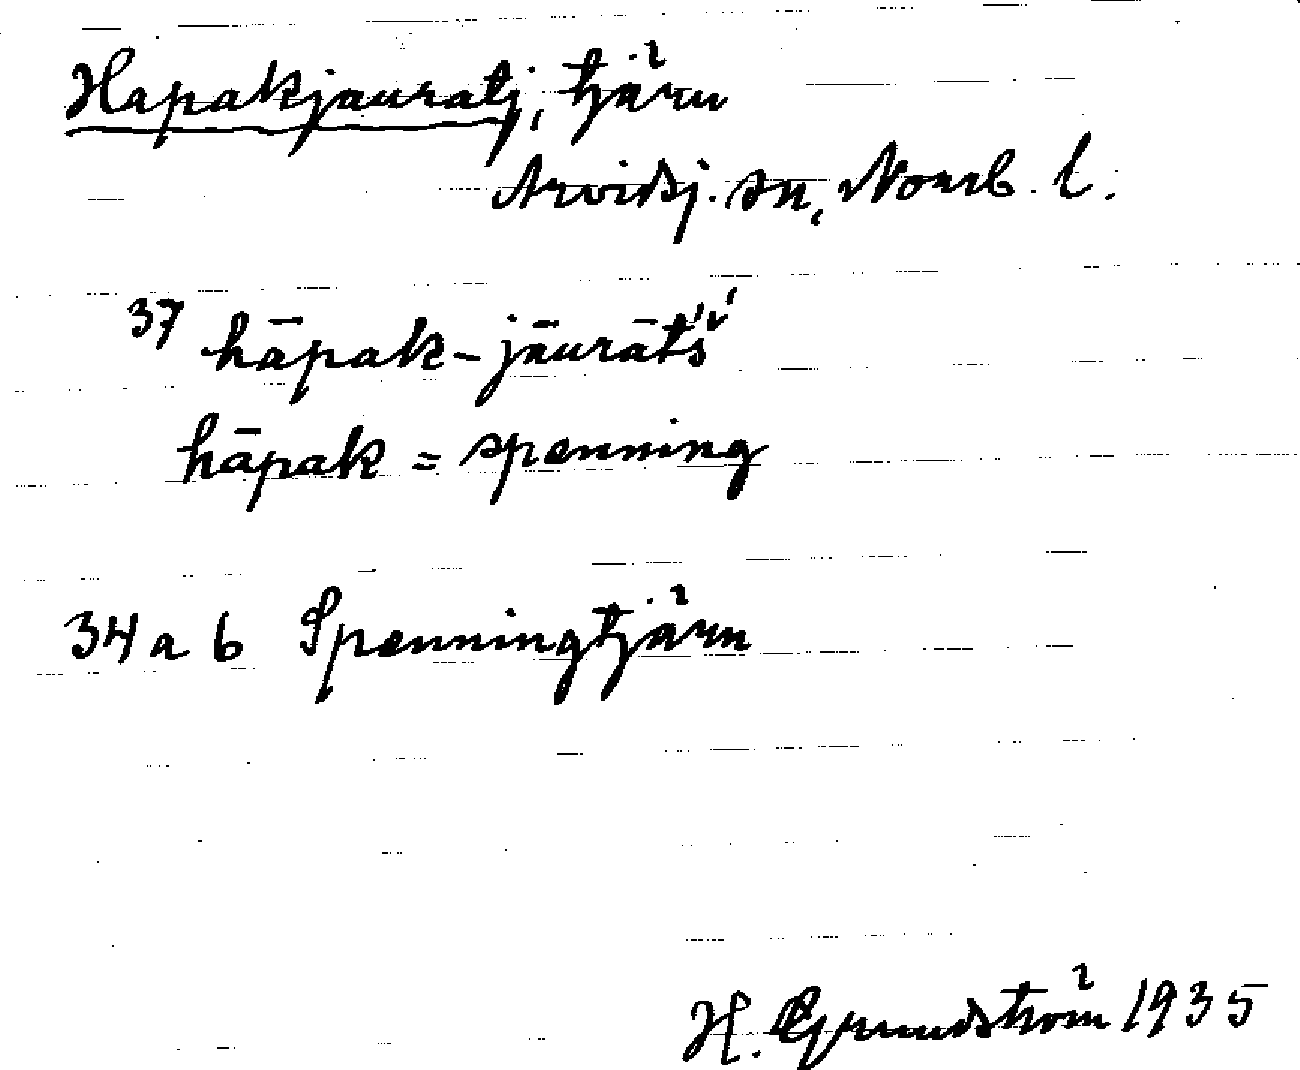 Hapakjauratj, tjärn
Arvidsj. sn, Norrb. l.
37 hāpak-jāurāt́š́
hāpak = spenning
34 a b Spenningtjärn
H. Grundström 1935